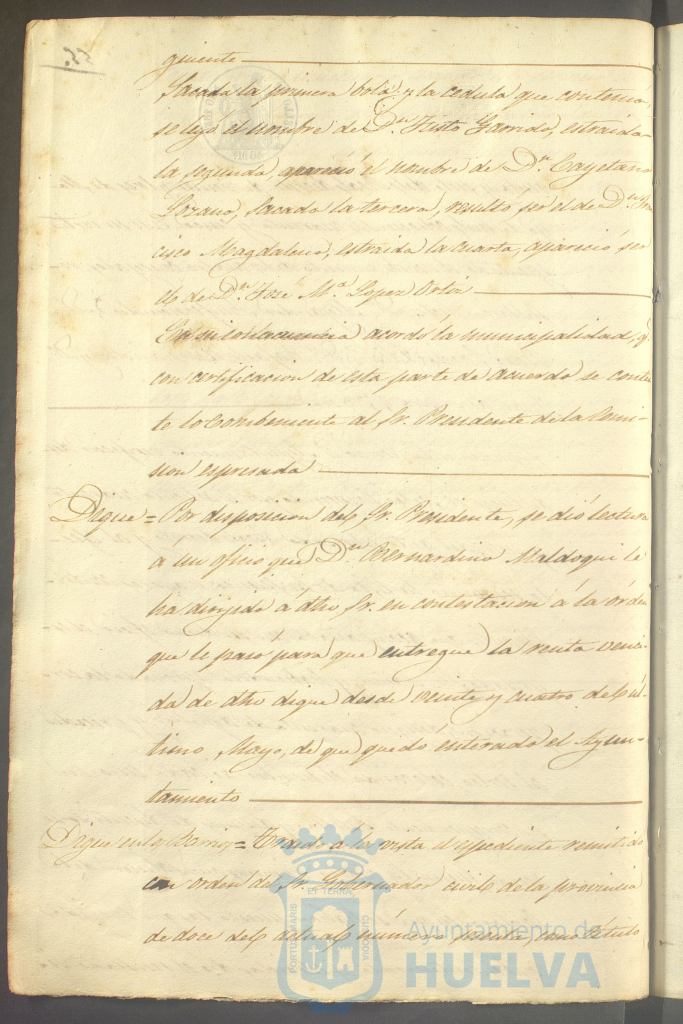 guiente
Sacada la primera bola, y la cedula que contenia,
se leyó el nombre de Dn. Justo Garrido, estraida
la segunda, apareció el nombre de Dn. Cayetano
Lozano, Sacada la tercera, resultó ser el de Dn. Fran
cisco Magdaleno, estraida la cuarta, apareció ser
el de Dn. José Ma. Lopez Ortiz
En su consecuencia acordó la municipalidad, q.
con certificacion de esta parte de acuerdo se contes
te lo combeniente al Sr. Presidente de la Comi-
sion espresada
Dique = Por disposicion del Sr. Presidente, se dió lectura
a un oficio que Dn. Bernardino Maldoqui le
ha dirijido á dho Sr. en contestacion á la órden
que le pasó para que entregue la renta venci-
da de dho dique desde veinte y cuatro del úl-
timo Mayo, de que quedó enterado el Ayun-
tamiento
Dique en la = Traido á la vista el espediente remitido
con orden del Sr. Gobernador civil de la provincia
de doce del actual número
55.
Ayuntamiento de
HUELVA
PORTUS MARIS ET TERRAE CUSTODIA